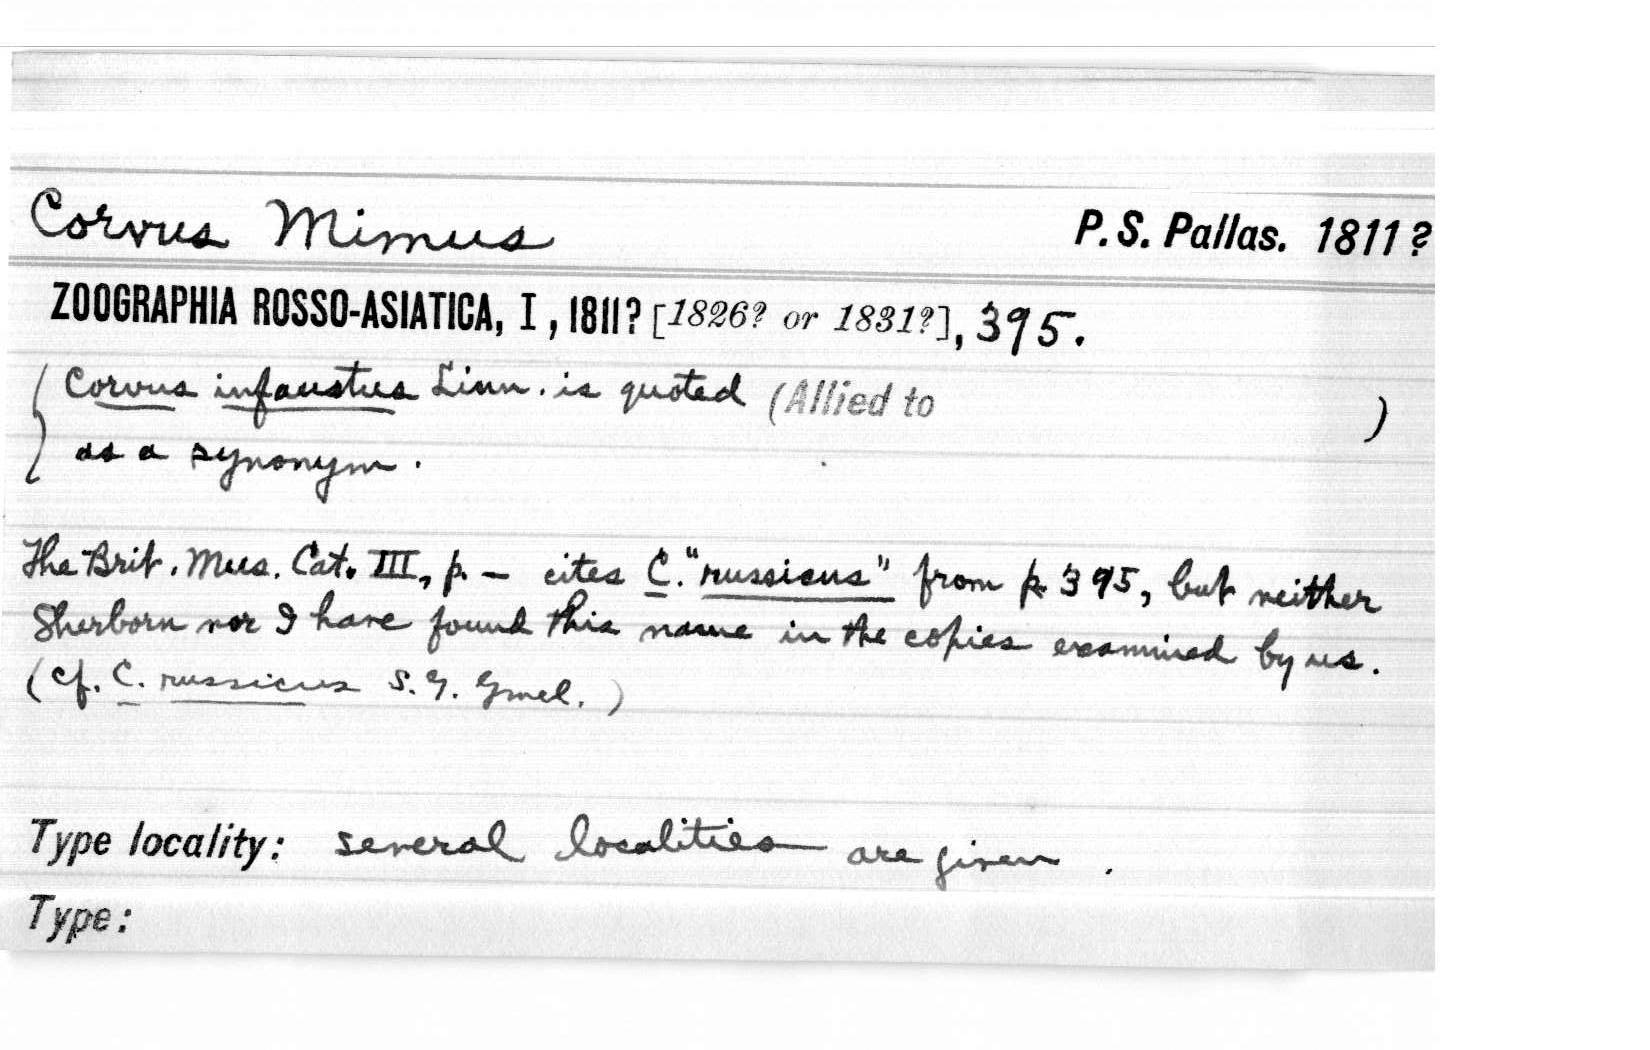 Corvus Mimus P. S. Pallas. 1811?
ZOOGRAPHIA ROSSO-ASIATICA, I, 1811? [1826? or 1831?], 395.
Corvus infaustus Linn. is quoted (Allied to )
as a synonym.
The Brit. Mus. Cat. III, p. — cites C. "russicus" from p. 395, but neither
Sherborn nor I have found this name in the copies examined by us.
(cf. C. russicus S. G. Gmel.)
Type locality: several localities are given.
Type: